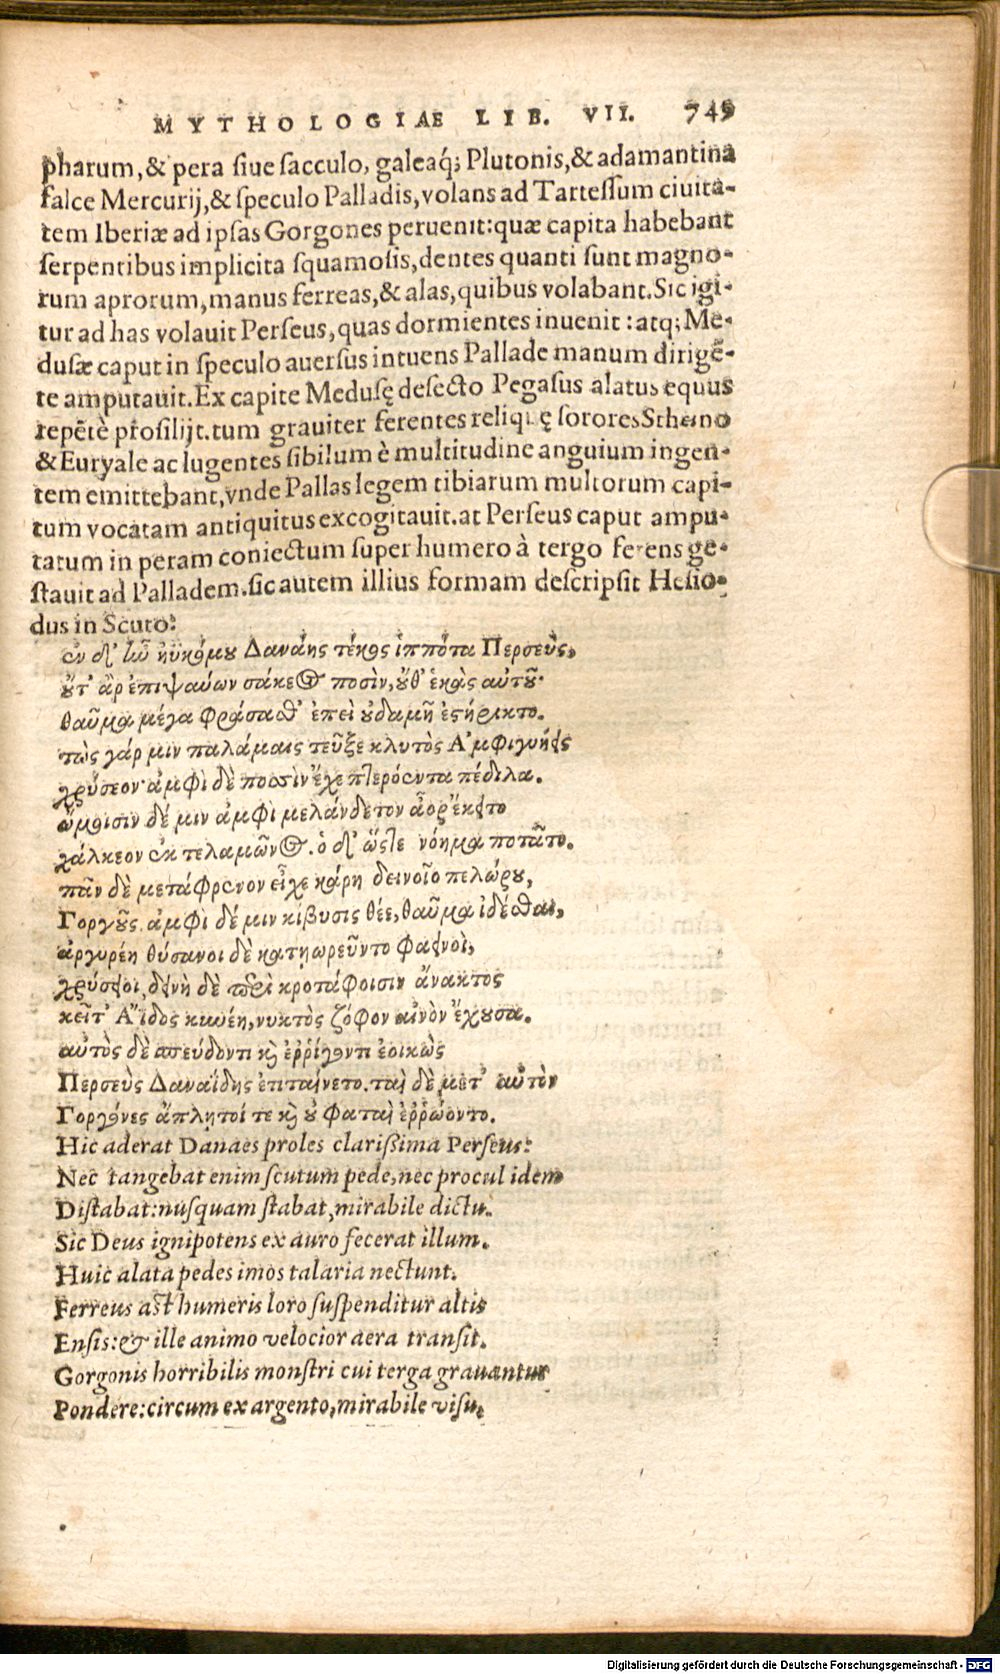 MYTHOLOGIAE LIB. VII. 745
pharum,& pera siue sacculo, galeaq́; Plutonis,& adamantina
falce Mercurij,& speculo Palladis,volans ad Tartessum ciuita-
tem Iberiæ ad ipsas Gorgones peruenit:quæ capita habebant
serpentibus implicita squamosis,dentes quanti sunt magno-
rum aprorum,manus ferreas,& alas,quibus volabant.Sic igi-
tur ad has volauit Perseus,quas dormientes inuenit:atq; Me-
dusæ caput in speculo auersus intuens Pallade manum dirigẽ-
te amputauit.Ex capite Medusę desecto Pegasus alatus equus
repẽtè prosilijt.tum grauiter ferentes reliquę sorores Stheno
& Euryale ac lugentes sibilum è multitudine anguium ingen-
tem emittebant,vnde Pallas legem tibiarum multorum capi-
tum vocatam antiquitus excogitauit.at Perseus caput ampu-
tatum in peram coniectum super humero à tergo ferens ge-
stauit ad Palladem.sic autem illius formam descripsit Hesio-
dus in Scuto:
ἐν δ' ἦν ἠϋκόμου Δανάης τέκος ἱππότα Περσεὺς,
οὔτ' ἂρ ἐπιψαύων σάκεος ποσὶν,οὔθ' ἑκὰς αὐτοῦ·
θαῦμα μέγα φράσασθ' ἐπεὶ οὐδαμῆ ἐστήρικτο.
τὼς γάρ μιν παλάμαις τεῦξε κλυτὸς Ἀμφιγυήεις
χρύσεον· ἀμφὶ δὲ ποσσὶν ἔχε πτερόεντα πέδιλα.
ὤμοισιν δέ μιν ἀμφὶ μελάνδετον ἆορ ἔκειτο
χάλκεον ἐκ τελαμῶνος. ὁ δ' ὥστε νόημα ποτᾶτο.
πᾶν δὲ μετάφρενον εἶχε κάρη δεινοῖο πελώρου,
Γοργοῦς. ἀμφὶ δέ μιν κίβυσις θέε,θαῦμα ἰδέσθαι,
ἀργυρέη θύσανοι δὲ κατῃωρεῦντο φαεινοὶ,
χρύσειοι, δεινὴ δὲ περὶ κροτάφοισιν ἄνακτος
κεῖτ' Ἄϊδος κυνέη,νυκτὸς ζόφον αἰνὸν ἔχουσα.
αὐτὸς δὲ σπεύδοντι καὶ ἐῤῥίγοντι ἐοικὼς
Περσεὺς Δαναΐδης ἐπιταίνετο.ταὶ δὲ μετ' αὐτὸν
Γοργόνες ἄπλητοί τε καὶ οὐ φαταὶ ἐῤῥώοντο.
Hic aderat Danaes proles clarißima Perseus:
Nec tangebat enim scutum pede,nec procul idem
Distabat:nusquam stabat,mirabile dictu.
Sic Deus ignipotens ex auro fecerat illum.
Huic alata pedes imos talaria nectunt.
Ferreus ast humeris loro suspenditur altis
Ensis:& ille animo velocior aera transit.
Gorgonis horribilis monstri cui terga grauantur
Pondere:circum ex argento,mirabile visu,
Digitalisierung gefördert durch die Deutsche Forschungsgemeinschaft - DFG